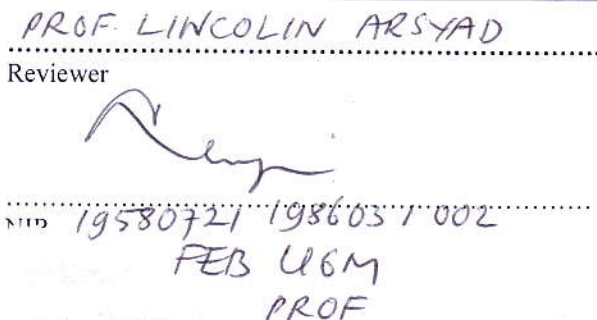 PROF. LINCOLIN ARSYAD
Reviewer
NIP 19580721 198603 1 002
FEB UGM
PROF